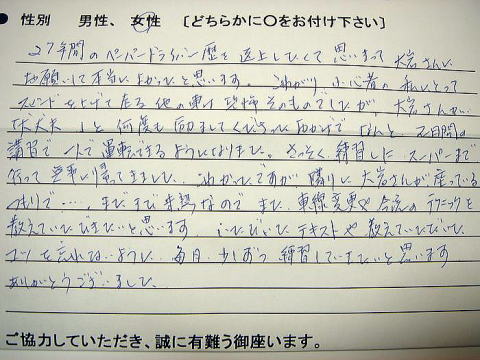 ● 性別 男性、 女性 〔どちらかに〇をお付け下さい〕
27年間のペーパードライバー歴を返上したくて思いきって大岩さんに
お願いして本当によかったと思います。こわがり、小心者の私にとって
スピードを上げて走る他の車は恐怖そのものでしたが 大岩さんが、
「大丈夫」と何度も励ましてくださったおかげで なんと、2日間の
講習で一人で運転できるようになりました。さっそく、練習したスーパーまで
行って無事に帰ってきました。こわかったですが隣りに大岩さんが座っている
つもりで‥‥。まだまだ未熟なので また、車線変更や合流のテクニックを
教えていただきたいと思います。いただいたテキストや教えていただいた
コツを忘れないように、毎日少しずつ練習していきたいと思います
ありがとうございました。
ご協力していただき、誠に有難う御座います。